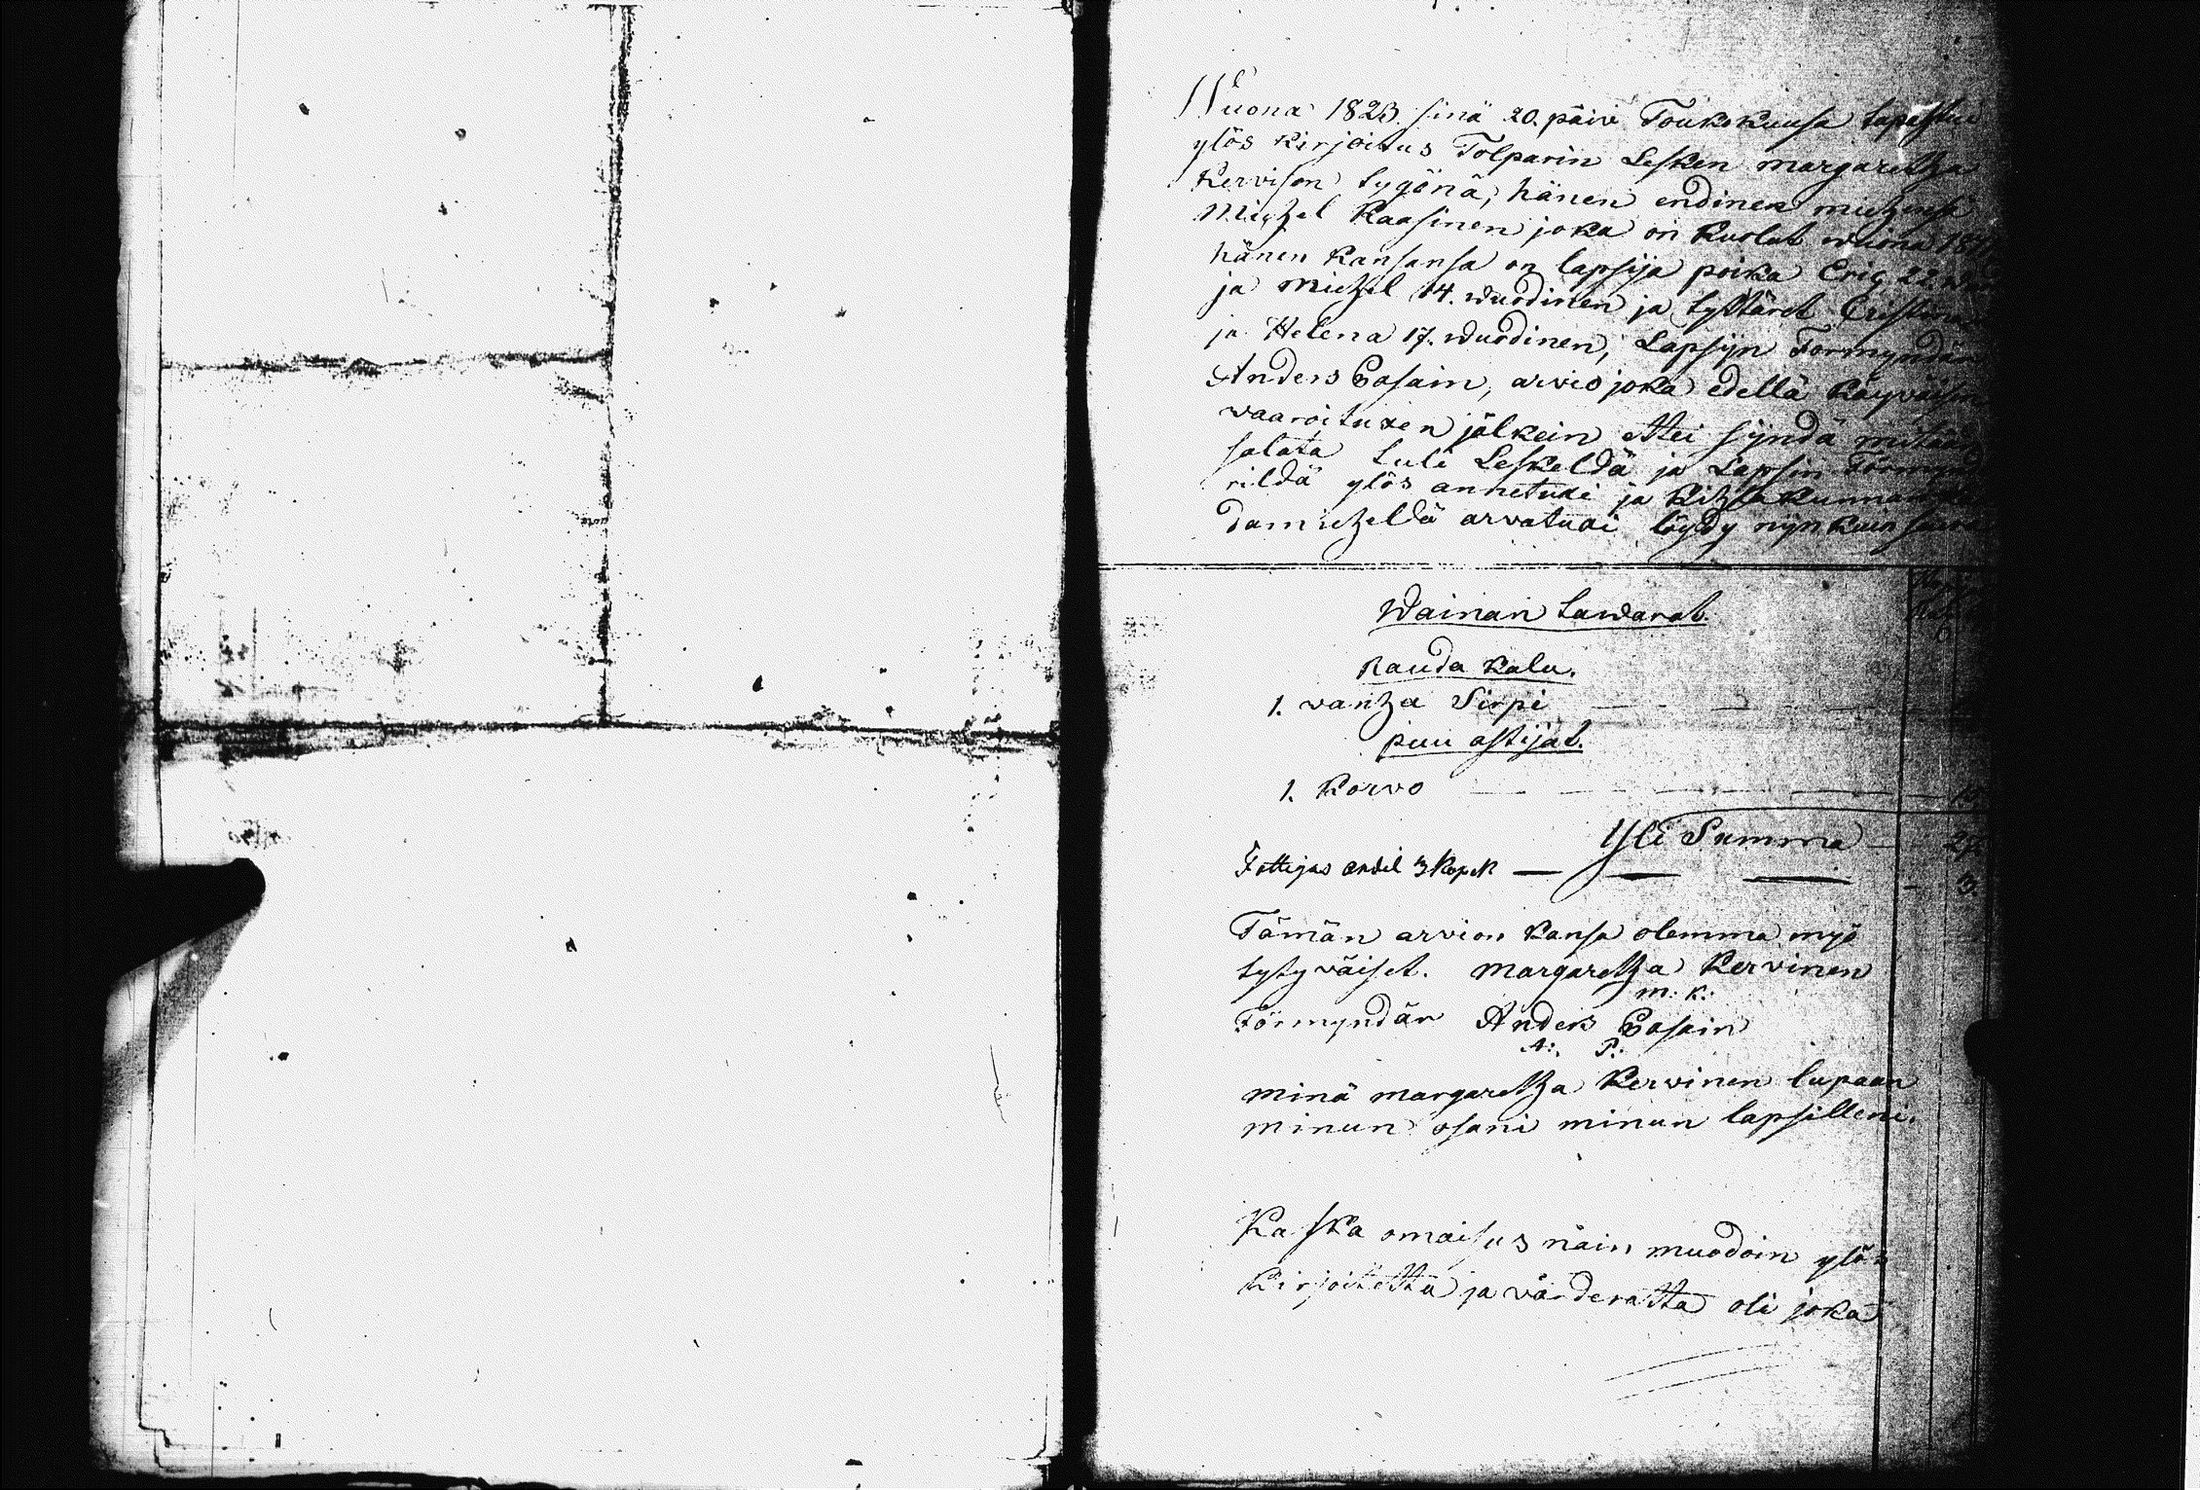 Wuona 1823 sinä 20. päivä Toukokuusa tapahtui
ylös kirjoitus Tolparin Lesken margaretha
Kervisen tygönä, hänen endinen miehensä
Michel Kaasinen joka on kuolut wuona
hänen kansansa on lapsija poika Eric 22.
ja Michel 14. wuodinen ja tyttäret Cristina
ja Helena 17. wuodinen, Lapsijn Formyndär
Anders Casain, arvio joka edellä käyväisen
waaroituxen jälkein ettei sijndä mitän
salata tuli Leskeldä ja Lapsin Förmyn
rildä ylös annetuxi ja kihlakunnan
damieheldä arvatuxi löydy nijn kuin
Wainan tawarat.
Rauda kalu.
1. vanha Sirpi
puu astijat.
1. Korvo
Yli Summa
Fattigas andel 3 Kopek 3.
Tämän arvion kansa olemma myö
tytyväiset. margaretha Kervinen
m: K:
Förmyndär Anders Casain
A: P:
minä margaretha Kervinen lupaan
minun osani minun lapsilleni.
Kaska omaisus näin muodoin ylös
Kirjoitettu ja värderattu oli joka